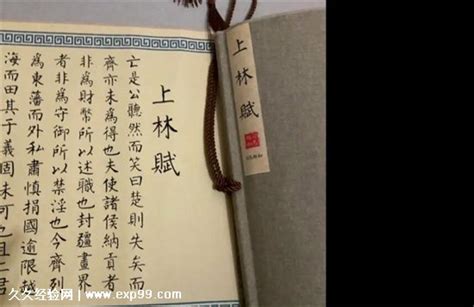 上林賦
亡是公聽然而笑曰楚則失矣而
齊亦未為得也夫使諸侯納貢者
非為財幣所以述職也封疆畫界
者非為守御所以禁淫也今齊列
為東藩而外私肅慎捐國逾限越
海而田其于義固未可也且二君
上林賦
久久经验网 | www.exp99.com